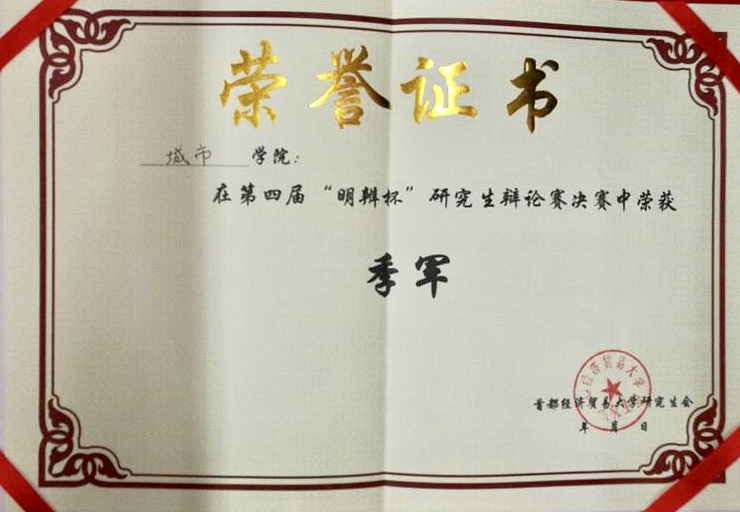 荣誉证书
城市学院：
在第四届“明辨杯”研究生辩论赛决赛中荣获
季军
经济贸易大学
首都经济贸易大学研究生会
年 月 日